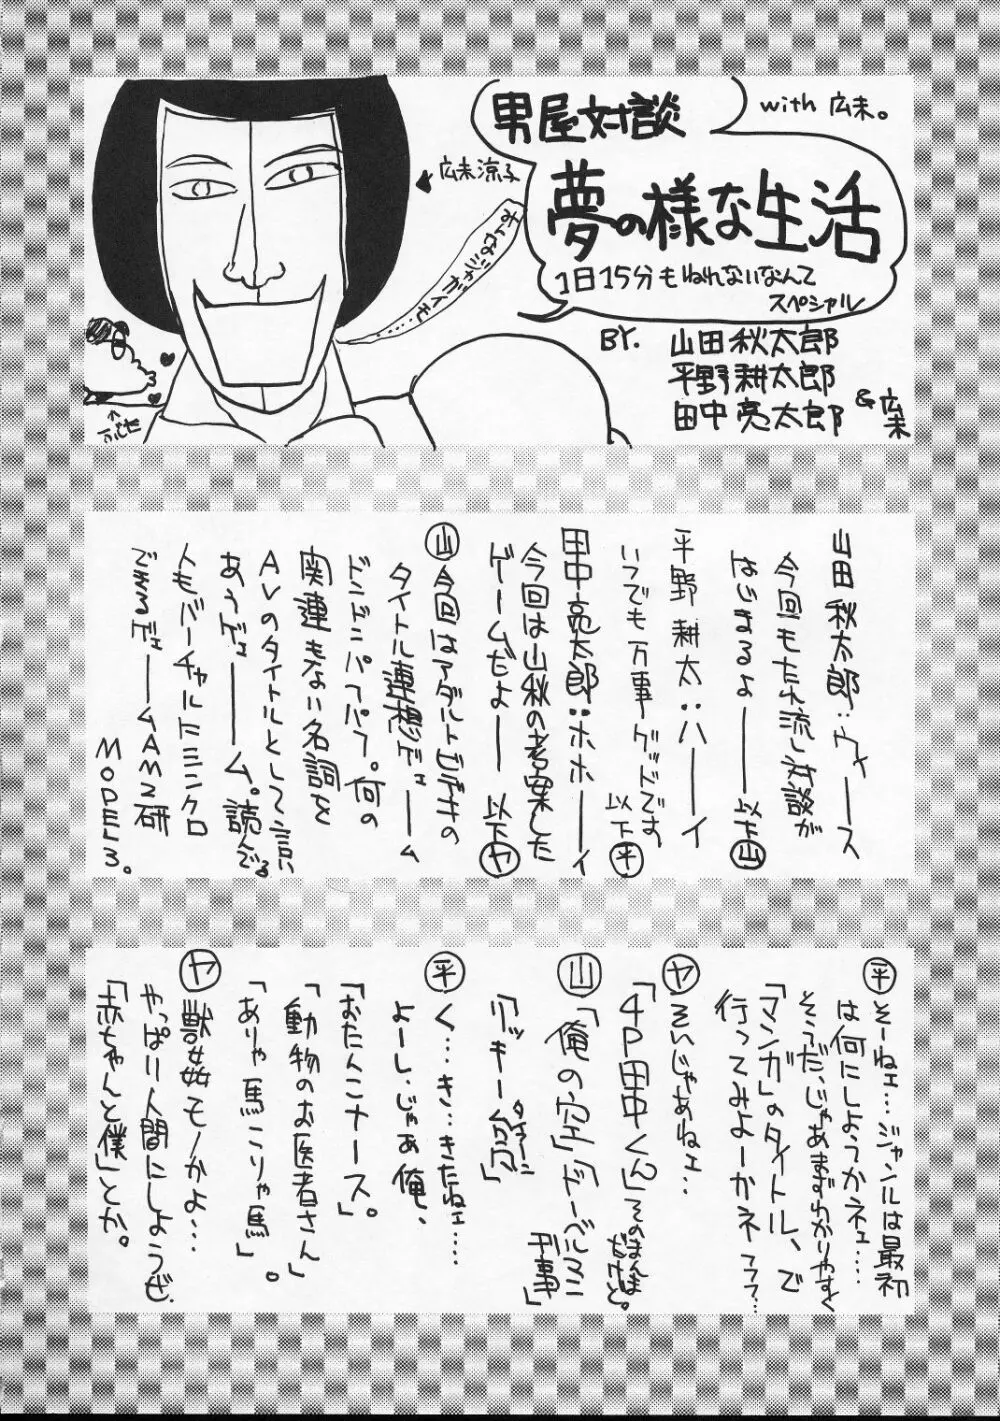 男屋対談
with 広末。
夢の様な生活
1日15分もねれないなんて
スペシャル
広末涼子
BY. 山田秋太郎
平野耕太郎
田中亮太郎
&広末
山田秋太郎:ウィース
今回もたれ流し対談が
はじまるよ――以下山
平野耕太:ハーイ
いつでも万事グッドです
以下平
田中亮太郎:ホホーイ
今回は山秋の考案した
ゲームだよ―― 以下ヤ
山 今回はアダルトビデオの
タイトル連想ゲェーム
ドンドンパフパフ。何の
関連もない名詞を
AVのタイトルとして言い
あうゲェ――ム。読んでる
人もバーチャルにシンクロ
できるゲェ――ムAM2研
MODEL3。
平 そーねェ…ジャンルは最初
は何にしようかネェ…
そうだ、じゃあまずわかりやすく
「マンガ」のタイトル、で
行ってみよーかネフフフ…
ヤ そいじゃあねェ…
「4P田中くん」そのまんま
だけど。
山 「俺の空」「ドーベルマン
刑事」
「リッキー台風」
タイフーン
平 く…き…きたねェ……
よーし、じゃあ俺、
「おたんこナース」。
「動物のお医者さん」
「ありゃ馬こりゃ馬」。
ヤ 獣姦モノかよ…
やっぱり人間にしようぜ.
「赤ちゃんと僕」とか。